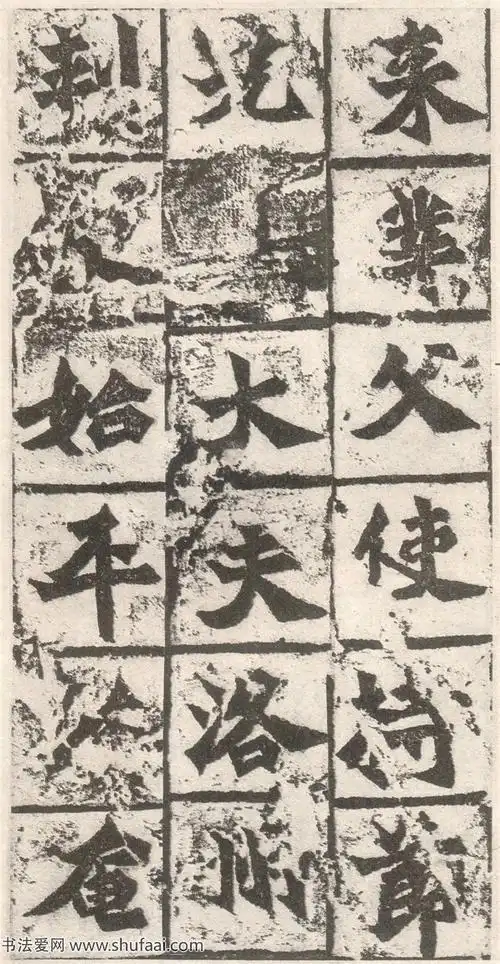 来業父使持節
光大夫洛州
刺史始平公奄
书法爱网 www.shufaai.com